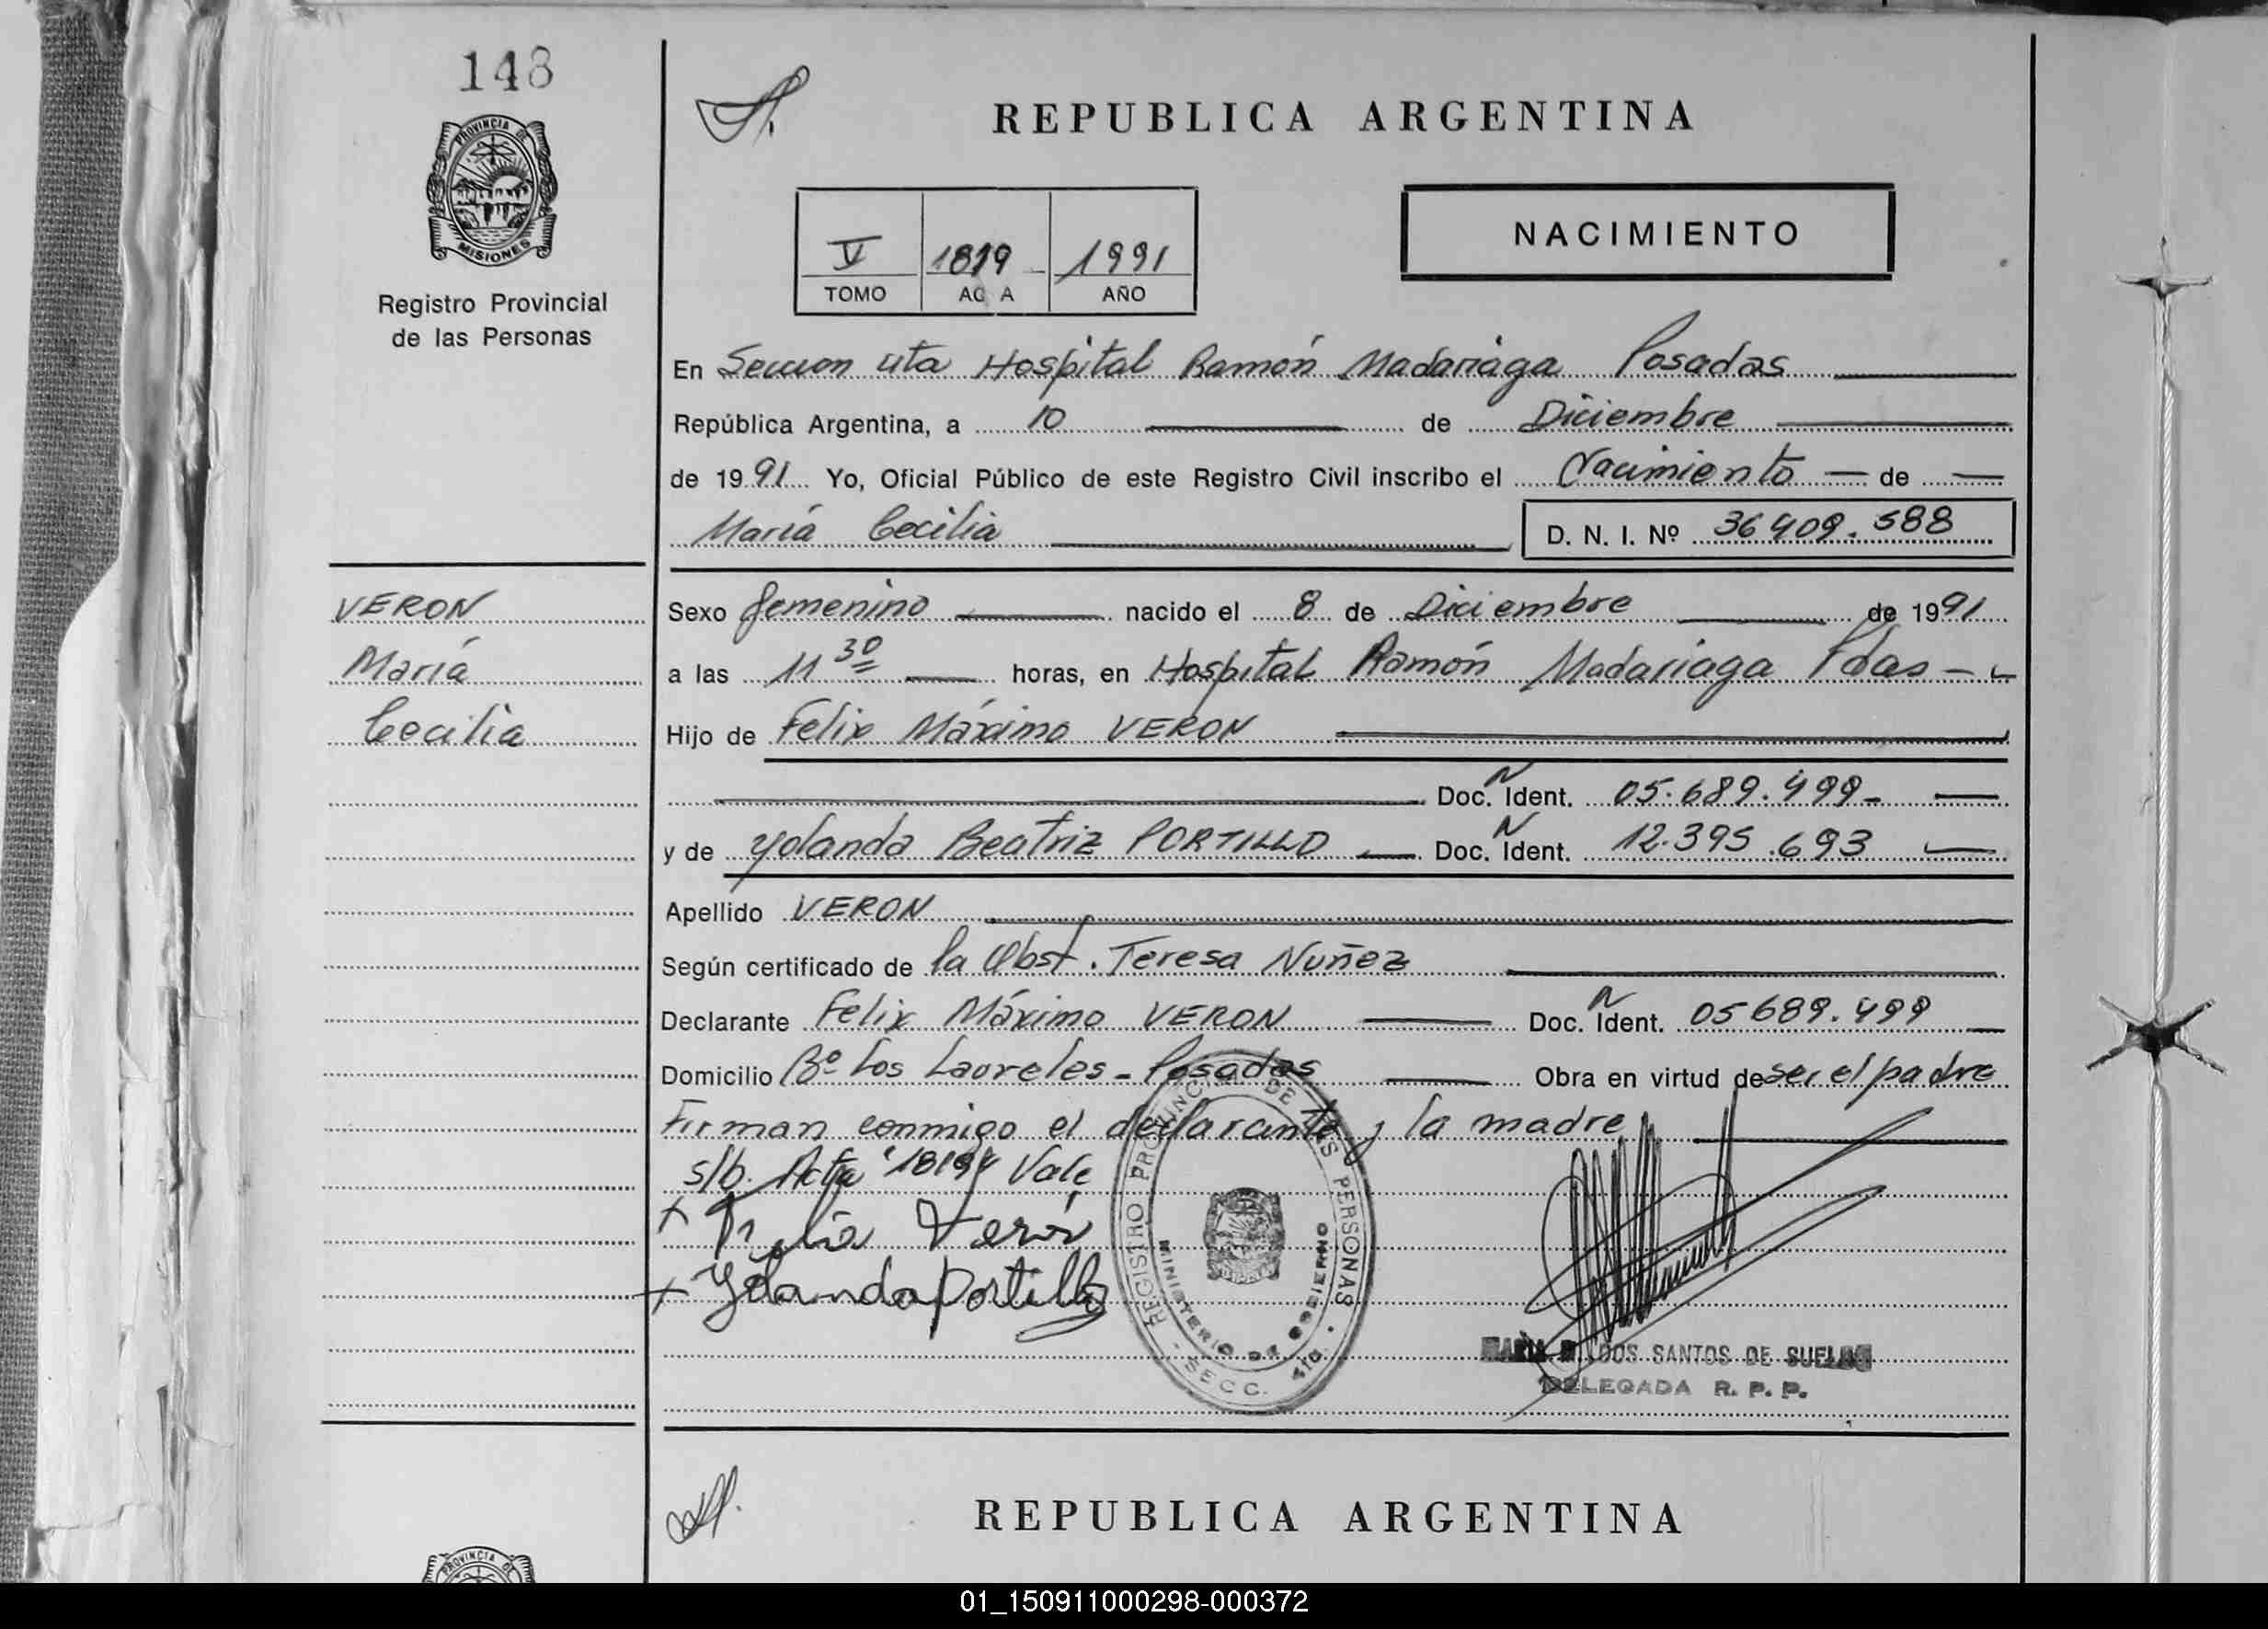 148
PROVINCIA DE
MISIONES
Registro Provincial
de las Personas
VERON
María
Cecilia
REPUBLICA ARGENTINA
V 1819 1991
TOMO AC A AÑO
NACIMIENTO
En Seccion 4ta Hospital Ramón Madariaga Posadas
República Argentina, a 10 de Diciembre
de 1991 Yo, Oficial Público de este Registro Civil inscribo el Nacimiento de
María Cecilia D. N. I. Nº 36409.588
Sexo femenino nacido el 8 de Diciembre de 1991
a las 11 30 horas, en Hospital Ramón Madariaga Pdas
Hijo de Felix Máximo VERON
Doc. N Ident. 05.689.499
y de Yolanda Beatriz PORTILLO Doc. N Ident. 12.395.693
Apellido VERON
Según certificado de la Obst. Teresa Nuñez
Declarante Felix Máximo VERON Doc. N Ident. 05689.499
Domicilio Bº Los Laureles - Posadas Obra en virtud de ser el padre
Firman conmigo el declarante y la madre
s/b. Acta 1819 Vale
+ Verón
+ Yolanda Portillo
REGISTRO PROVINCIAL DE LAS PERSONAS
MINISTERIO DE GOBIERNO
SECC. 4ta.
MARIA DOS SANTOS DE
DELEGADA R. P. P.
REPUBLICA ARGENTINA
PROVINCIA DE
01_150911000298-000372